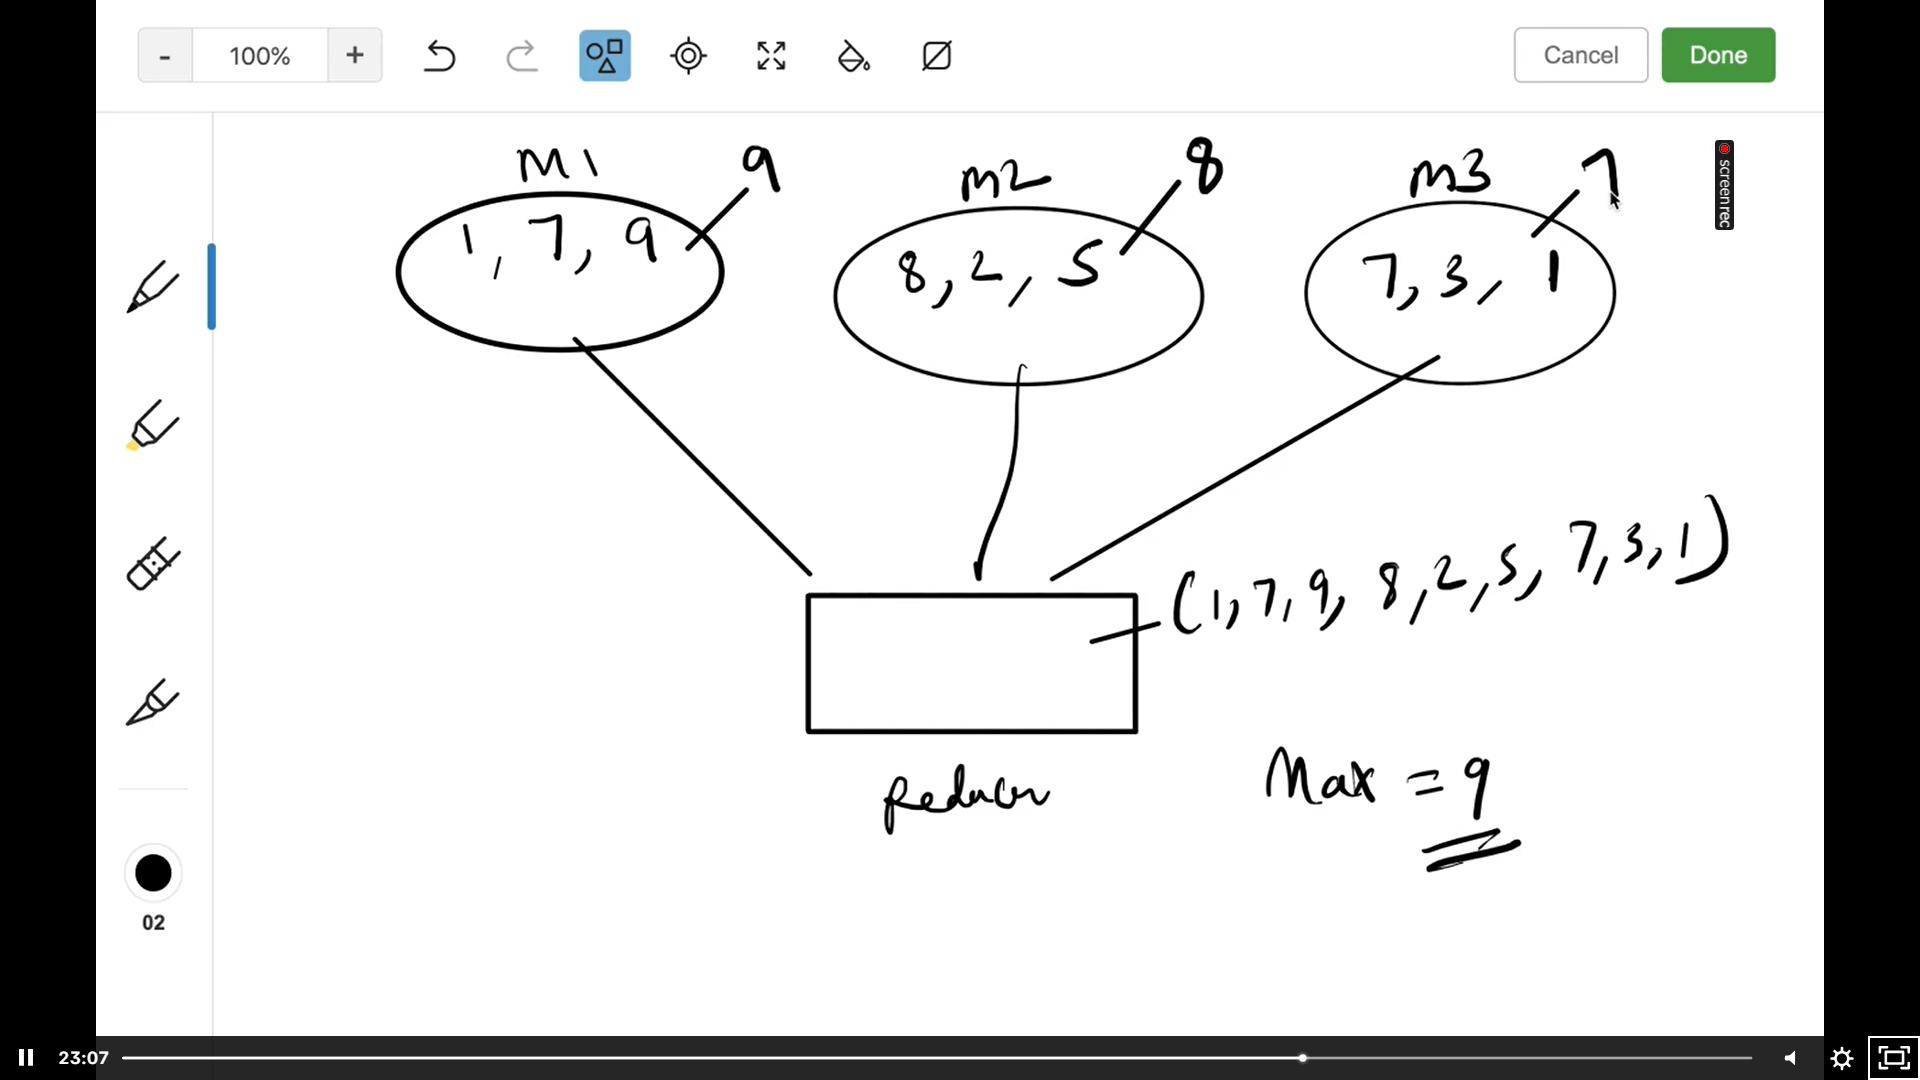 - 100% + Cancel Done
screenrec
M1 9
m2 8
m3 7
1, 7, 9
8, 2, 5
7, 3, 1
(1, 7, 9, 8, 2, 5, 7, 3, 1)
Reducer
Max = 9
02
23:07